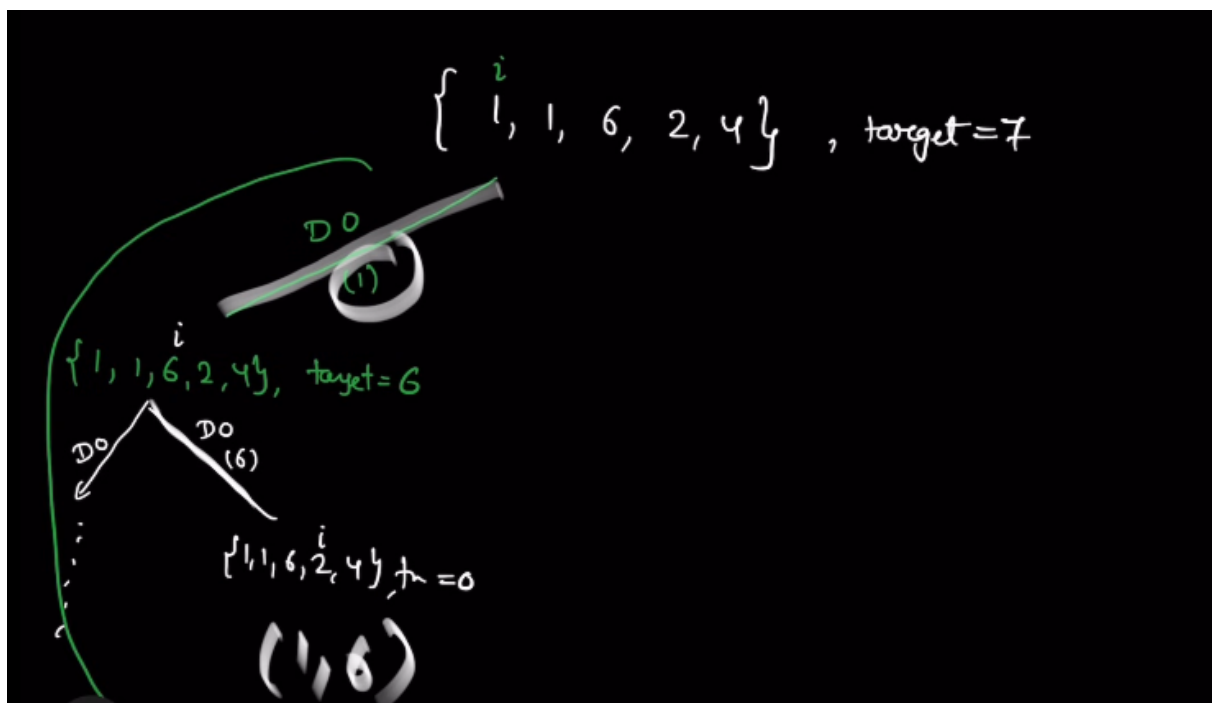 i
{ 1, 1, 6, 2, 4} , target = 7
DO
(1)
i
{1, 1, 6, 2, 4}, target = 6
DO
DO
(6)
i
{1, 1, 6, 2, 4}, = 0
(1, 6)